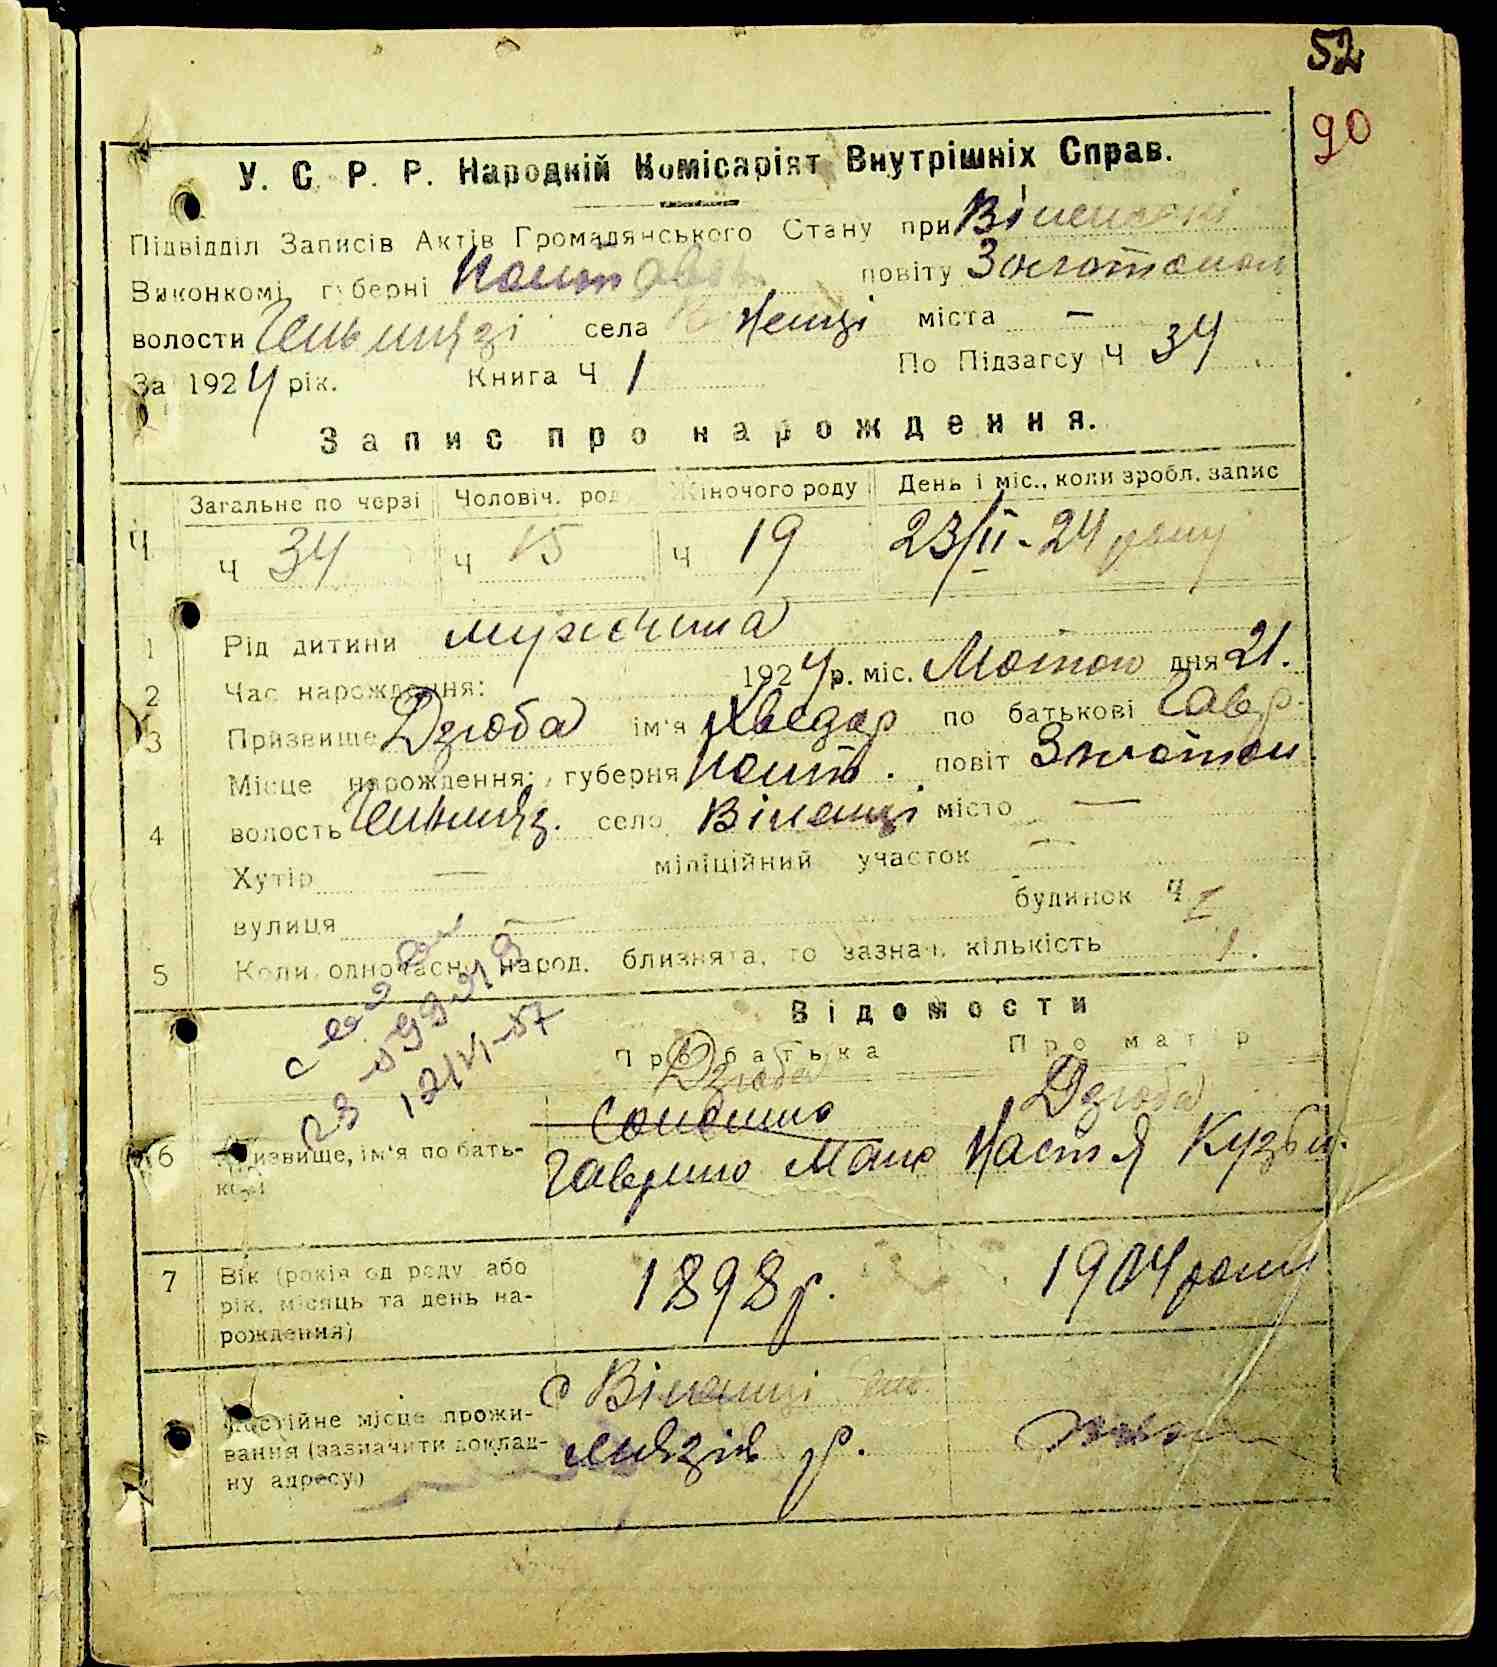 52
90
У. С. Р. Р. Народній Комісаріят Внутрішніх Справ.
Підвідділ Записів Актів Громадянського Стану при Віненскі
Виконкомі губерні Полт повіту Золотонош
волости Гельмязі села Віненці міста —
За 1924 рік. Книга Ч 1 По Підзагсу Ч 34
Запис про народження.
Загальне по черзі Чоловіч. род Жіночого роду День і міс., коли зробл. запис
Ч Ч 34 Ч 15 Ч 19 23/II - 24 року
1 Рід дитини мужчина
2 Час народження: 1924 р. міс. Лютого дня 21.
3 Призвище Дзюба ім'я Хведор по батькові Гавр.
Місце народження: губерня Полт. повіт Золотон.
4 волость Гельмяз. село Віненці місто —
Хутір — міліційний участок —
вулиця — будинок Ч
5 Коли одночасно народ. близнята, то зазнач. кількість 1.
Відомости
Про батька Про матір
Дзюба Дзюба
6 Призвище, ім'я по бать-
кові
Гаврило Мак Настя Кузьм.
12/VI-57
7 Вік (років од роду або
рік, місяць та день на-
рождення)
1898 р. 1904 року
Постійне місце прожи-
вання (зазначити доклад-
ну адресу)
с Віненці гель
мязів р.